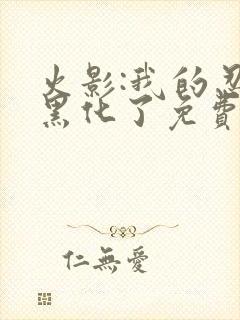 火影:我的忍
黑化了免費
仁無愛